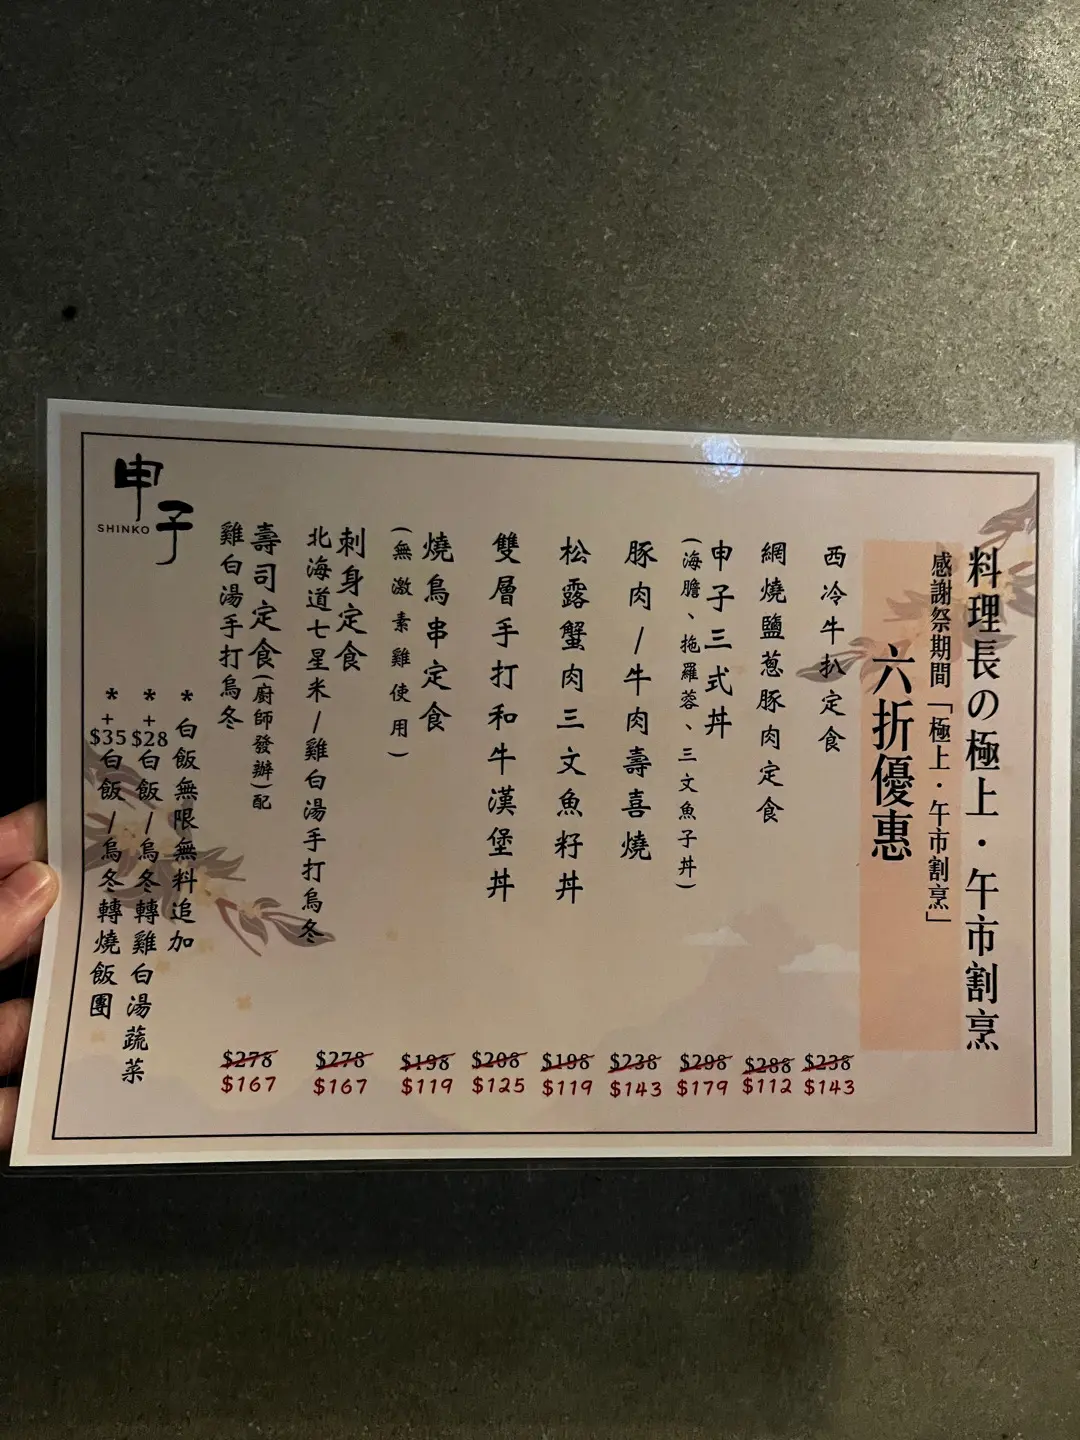 料理長の極上・午市割烹
感謝祭期間「極上・午市割烹」
六折優惠
西冷牛扒定食
$238
$143
網燒鹽蔥豚肉定食
$288
$112
申子三式丼
(海膽、拖羅蓉、三文魚子丼)
$298
$179
豚肉/牛肉壽喜燒
$238
$143
松露蟹肉三文魚籽丼
$198
$119
雙層手打和牛漢堡丼
$208
$125
燒鳥串定食
(無激素雞使用)
$198
$119
刺身定食
北海道七星米/雞白湯手打烏冬
$278
$167
壽司定食(廚師發辦)配
雞白湯手打烏冬
$278
$167
*白飯無限無料追加
*+$28白飯/烏冬轉雞白湯蔬菜
*+$35白飯/烏冬轉燒飯團
申子
SHINKO